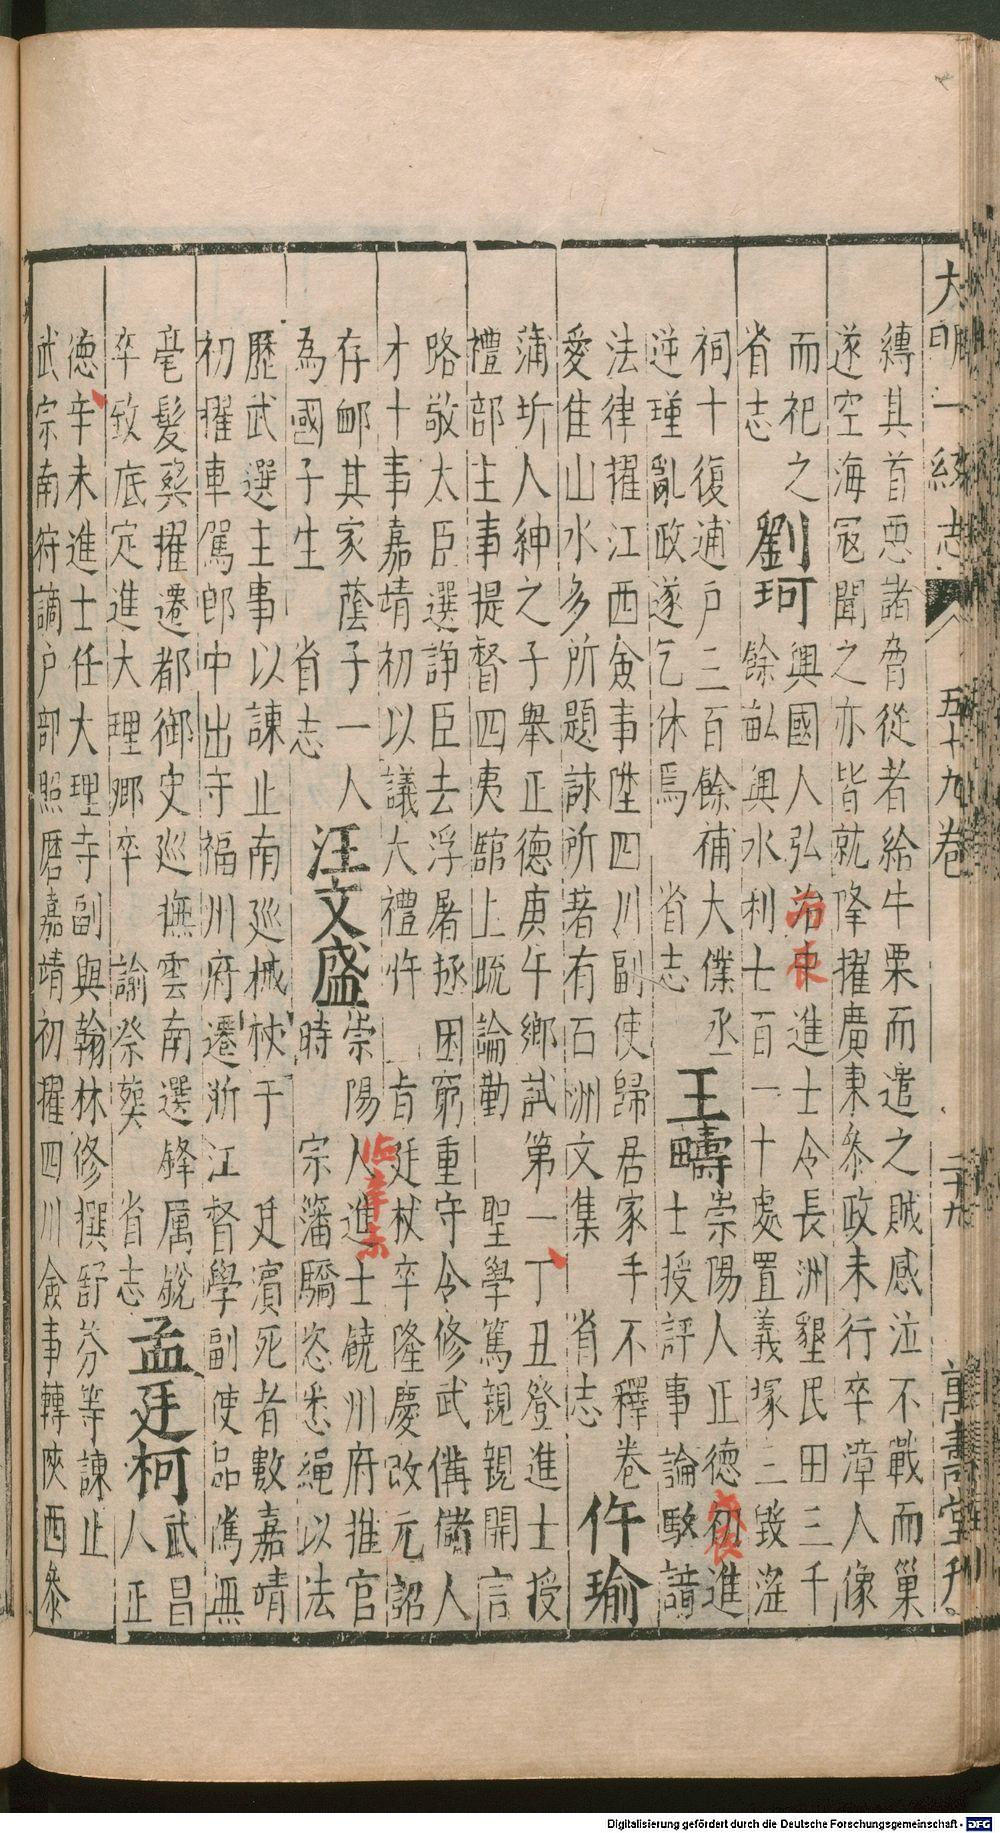 大明一統志 五十九卷 二十九 萬壽堂刊
縳其首惡諸脅從者給牛粟而遣之賊感泣不戰而巢
遂空海冦聞之亦皆就降擢廣東叅政未行卒漳人像
而祀之劉珂興國人弘治東進士令長洲墾民田三千
省志餘畆興水利士百一十處置義塚三毀滛
祠十復逋户三百餘補大僕丞王疇崇陽人正德初進
逆瑾亂政遂乞休焉 省志士授評事論駁諳
法律擢江西僉事陞四川副使歸居家手不釋卷仵瑜
愛隹山水多所題詠所著有石洲文集 省志
蒲圻人紳之子舉正德庚午鄉試第一丁丑登進士授
禮部主事提督四夷舘上䟽論勤 聖學篤親親開言
路敬太臣選諍臣去浮屠拯困窮重守令修武備儲人
才十事嘉靖初以議大禮忤 旨廷杖卒隆慶改元詔
存䘏其家蔭子一人汪文盛崇陽人進士饒州府推官
為國子生 省志時 宗藩驕恣悉繩以法
歷武選主事以諫止南巡械杖于 廷瀕死者數嘉靖
初擢車駕郎中出守福州府遷浙江督學副使品鴈無
毫髮爽擢遷都御史巡撫雲南選鋒厲銳孟廷柯武昌
卒致底定進大理卿卒 諭祭葬 省志人正
德辛未進士任大理寺副與翰林修撰舒芬等諫止
武宗南狩謫户部照磨嘉靖初擢四川僉事轉陝西叅
辛未
Digitalisierung gefördert durch die Deutsche Forschungsgemeinschaft - DFG